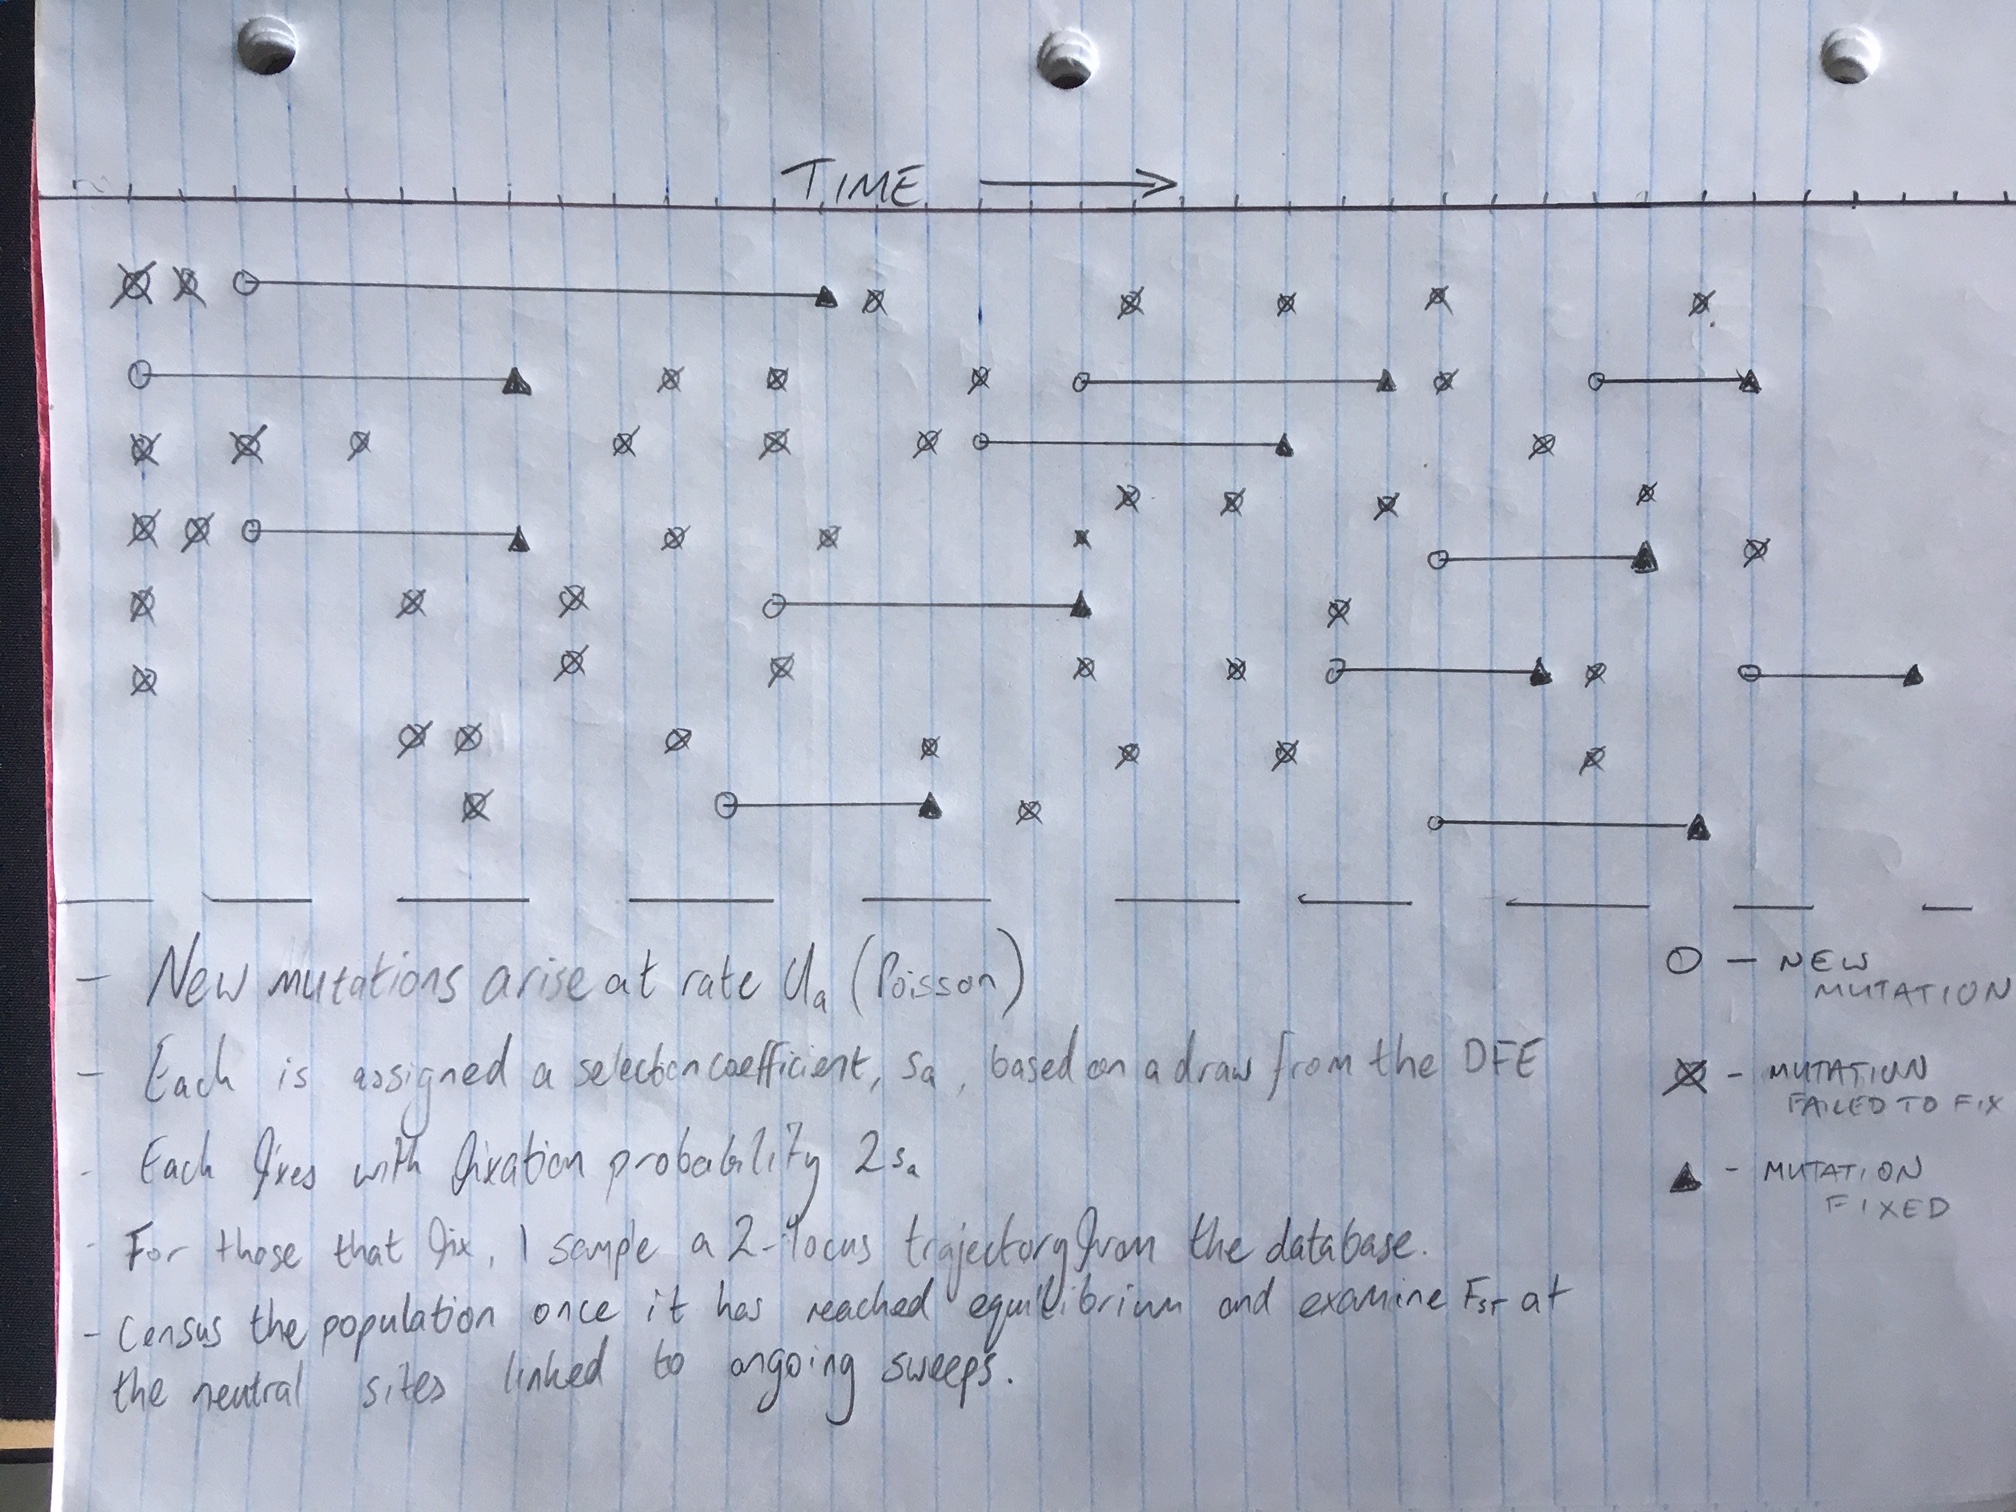 TIME
- New mutations arise at rate Ua (Poisson)
- Each is assigned a selection coefficient, sa, based on a draw from the DFE
- Each fixes with fixation probability 2sa
- For those that fix, I sample a 2-locus trajectory from the database.
- Census the population once it has reached equilibrium and examine FST at
the neutral sites linked to ongoing sweeps.
O - NEW
MUTATION
- MUTATION
FAILED TO FIX
▲ - MUTATION
FIXED